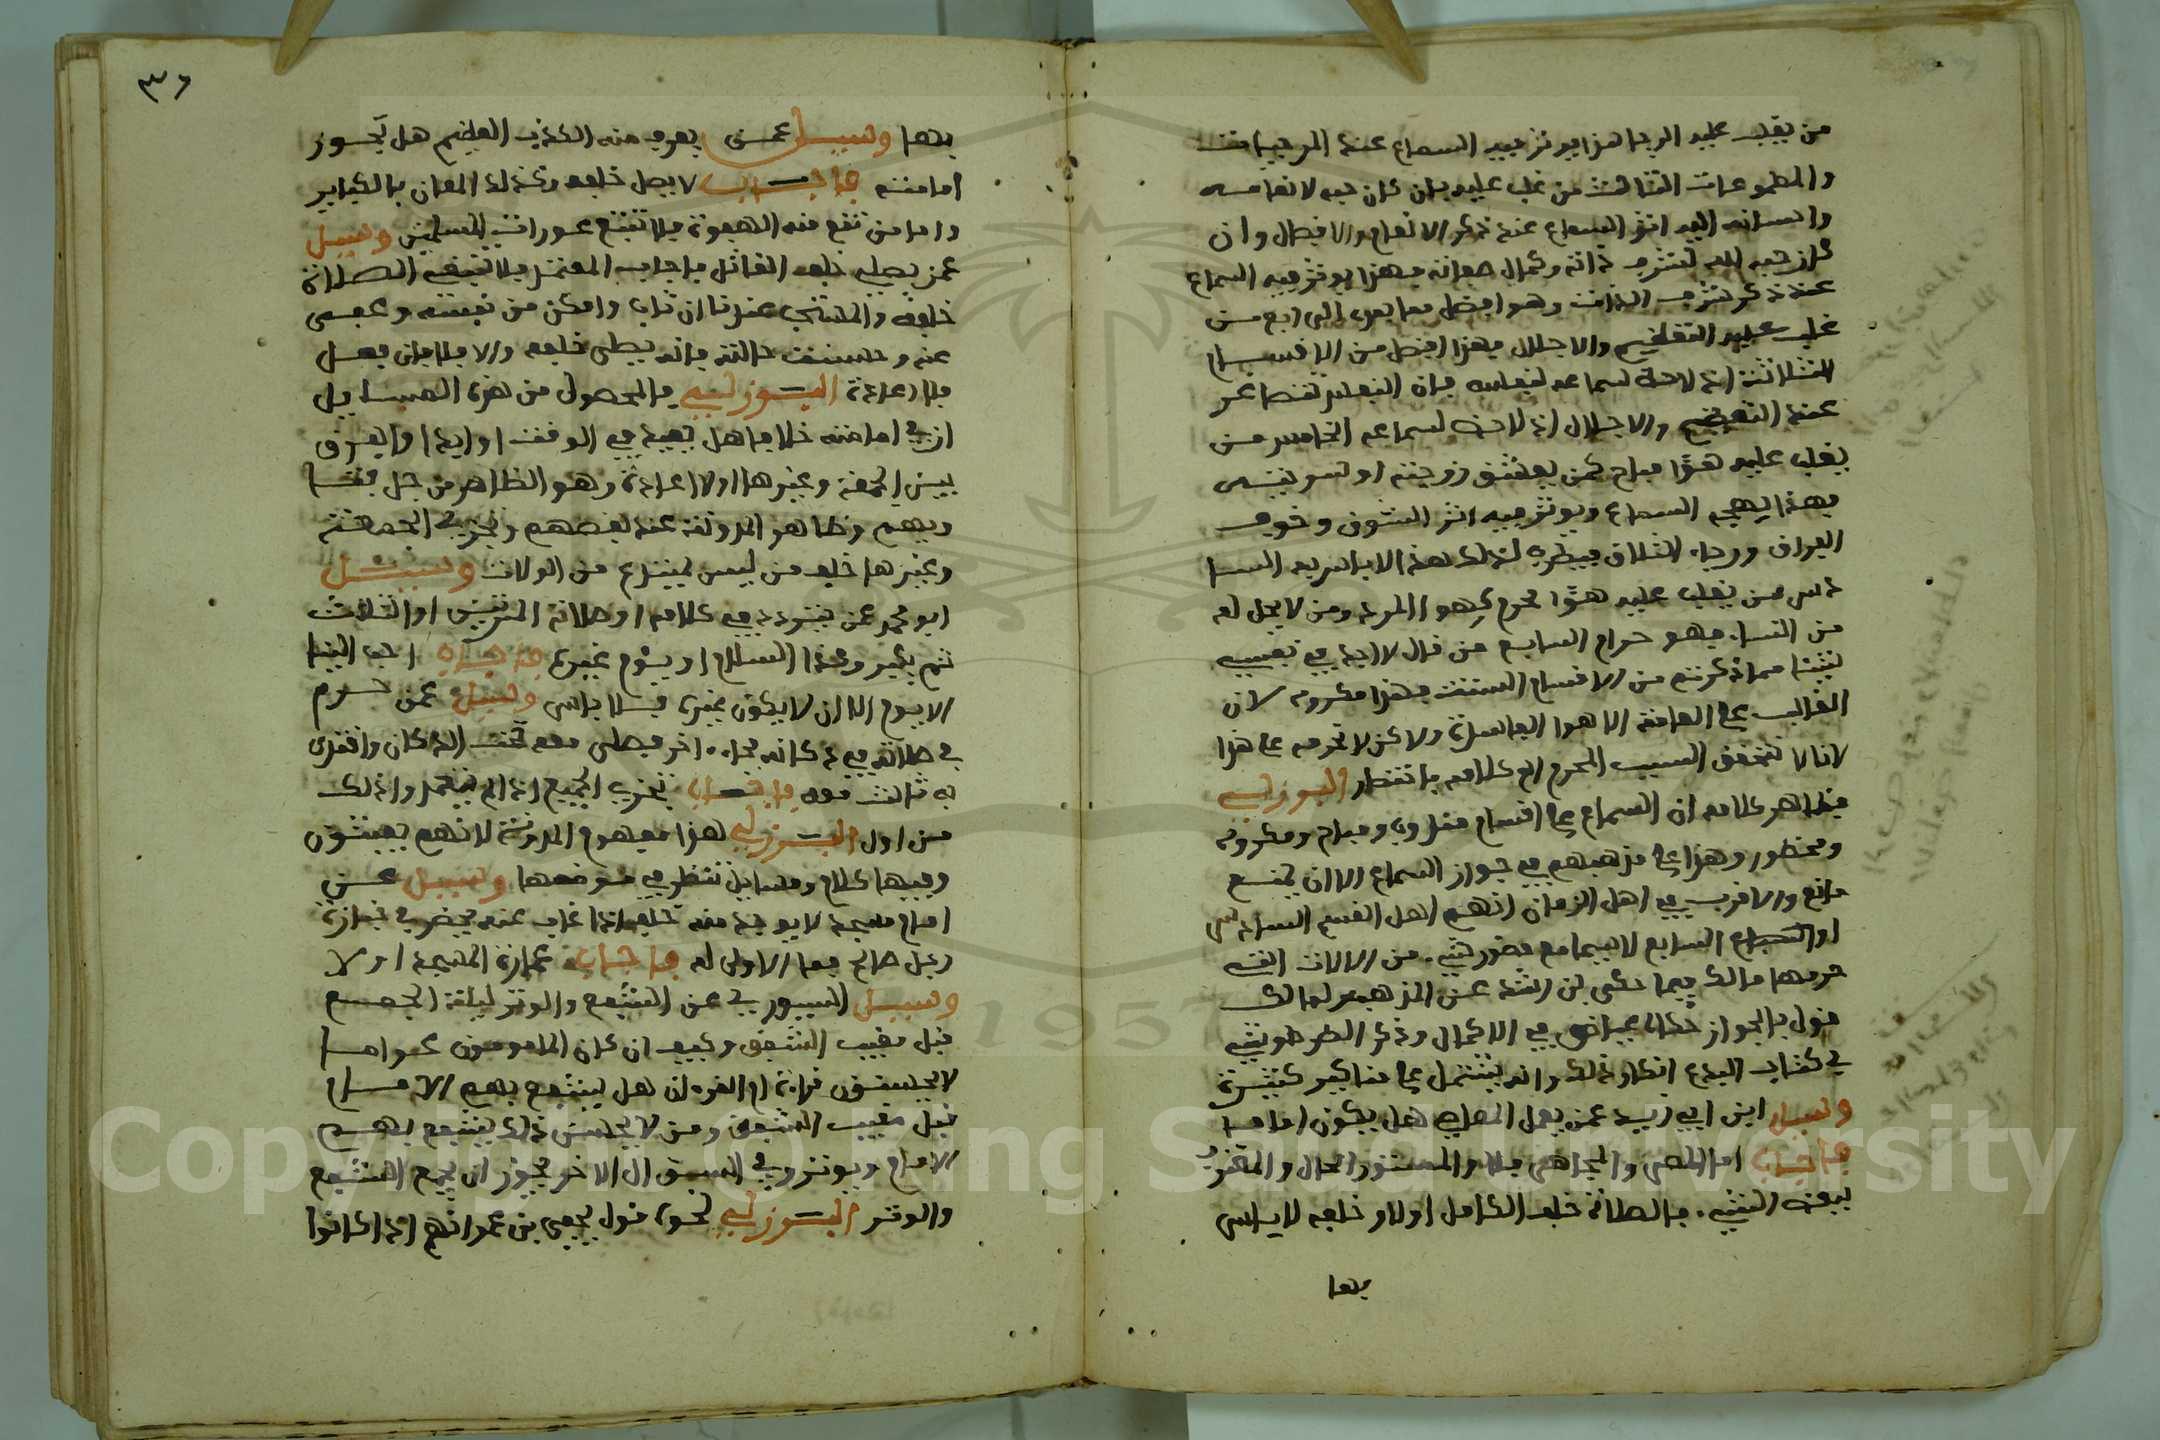 من يغلب عليه الرجا فهذا يوثر فيه السماع عند المرجيات
والمطموعات الثالث من غلب عليه بان كان حبه لانعامه
واحسانه اليه اثر السماع عنده ذكر الانعام والافضال وان
كان حبه الله لشرف ذاته وكمال صفاته فهذا يوثر فيه السماع
عند ذكر شرف الذات وهو افضل مما يعرى الرابع من
غلب عليه التعظيم والاجلال فهذا افضل من الاقسام
الثلاثة اذ لاحظ لسماعه لنفسه فان النفس تتصاغر
عند التعظيم والاجلال اذ لاحظ لسماعه الخامس من
يغلب عليه هوًا مباح كمن يعشق زوجته او سريته
فهذا يهيجه السماع ويوثر فيه اثر الشوق وخوف
الفراق ورجاء التلاق فيطرب لذلك هذا لا باس به السا
دس من يغلب عليه هوًا محرم كهوا المرد ومن لا يحل له
من النساء فهو حرام السابع من قال لا اجد في نفسي
شيئا مما ذكرتم من الاقسام الستة فهذا مكروه لان
الغالب على العامة الاهوا الفاسدة ولاكن لا نحرمه على هذا
لانا لا نتحقق السبب المحرم اه كلامه بانتظار البرزلي
فظاهر كلامه ان السماع على اقسام مندوب ومباح ومكروه
ومحظور وهذا على مذهبهم في جواز السماع الا ان يمنع
مانع والاقرب في اهل الزمان انهم اهل القسم السادس
او السابع لاسيما مع حضور شيء من الالات التي
حرمها مالك فيما حكى بن رشد عن المذهب ولمالك
قول بالجواز حكاه عياض في الاكمال وذكر الطرطوشي
في كتاب البدع انكار ذلك وانه يشتمل على مناكير كثيرة
وسيل ابن ابي زيد عمن يعمل المعاصي هل يكون اماما
فاجاب اما المصر والمجاهر فلا والمستور الحال والمعترف
ببعض الشيء فالصلاة خلف الكامل اولا وخلفه لا باس
بها
٣٦
بها وسيل عمن يعرف منه الكذب العظيم هل تجوز
امامته فاجاب لا يصل خلفه وكذلك المعان بالكباير
واما من تقع منه الهفوة فلا تتبع عورات المسلمين وسيل
عن يصلي خلف القاتل فاجاب المعتمد فلا تنبغي الصلاة
خلفه والمستحب عندنا ان تاب وامكن من نفسه وعفى
عنه وحسنت حالته فانه يصلى خلفه والا فلا فان فعل
فلا اعادة البرزلي فالمحصول من هذه المسايل
ان في امامته خلافا هل يعيد في الوقت او ابدا او الفرق
بين الجمعة وغيرها او لا اعادة وهو الظاهر من جل
وظاهر المدونة عند بعضهم وتجزي الجمعة
وغيرها خلف من ليس بمبتدع من الولات وسيل
ابو محمد عمن يتردد في كلامه او صلاته المرتين او الثلاث
ثم يكبر وكذا السلام او يؤم غيره فاجاب احب الينا
لا يوم الا ان لا يكون غيره فلا باس وسيل عمن حرم
في صلاته في دكانه فجاء اخر فصلى معه تحت الدكان واقتدى
به ثالث معه فاجاب تجزي الجميع اذا لم يتعمدوا ذلك
من اول البرزلي هذا مفهوم المدونة لانهم يعبثون
وفيها كلام ومسايل تنظر في موضعها وسيل عن
امام مسجد لا يوجد منه خلف اذا غاب عنه يحضر في جنازة
رجل صالح فما الاولى له فاجاب عمارة المسجد اولا
وسيل السيوري عن الشفع والوتر ليلة الجمع
قبل مغيب الشفق وكيف ان كان المامومون عواما
لا يحسنون قراءة ام القران هل يشفع بهم الامام
قبل مغيب الشفق ومن لا يحسن ذلك يشفع بهم
الامام ويوتر وفي السوال الاخر فيجوز ان يجمع الشفع
والوتر البرزلي نحوه قول يحيى بن عمر انهم اذا كانوا